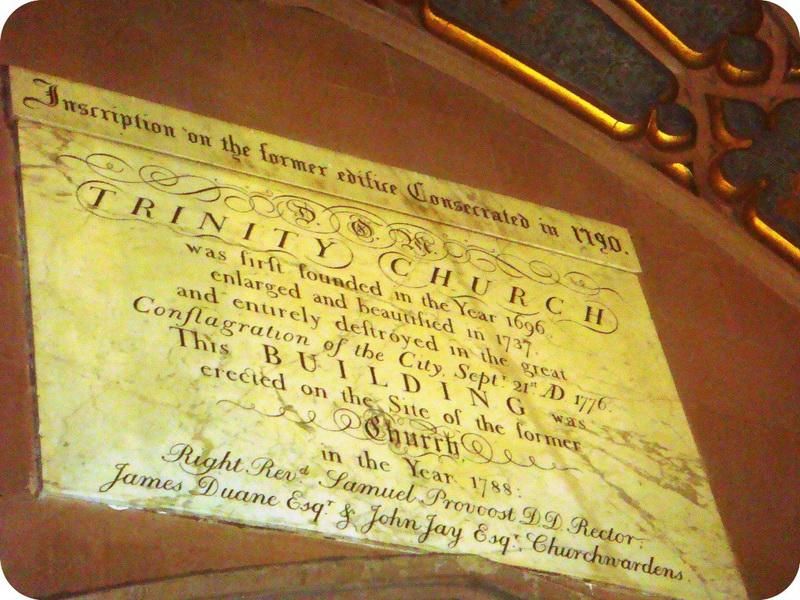 Inscription on the former edifice Consecrated in 1790.
D. O. M.
TRINITY CHURCH
was firſt founded in the Year 1696.
enlarged and beautified in 1737.
and entirely deſtroyed in the great
Conflagration of the City, Septr. 21st AD 1776.
This BUILDING was
erected on the Site of the former
Church,
in the Year 1788:
Right Revd Samuel Provoost D.D. Rector.
James Duane Esqr & John Jay Esqr. Churchwardens.